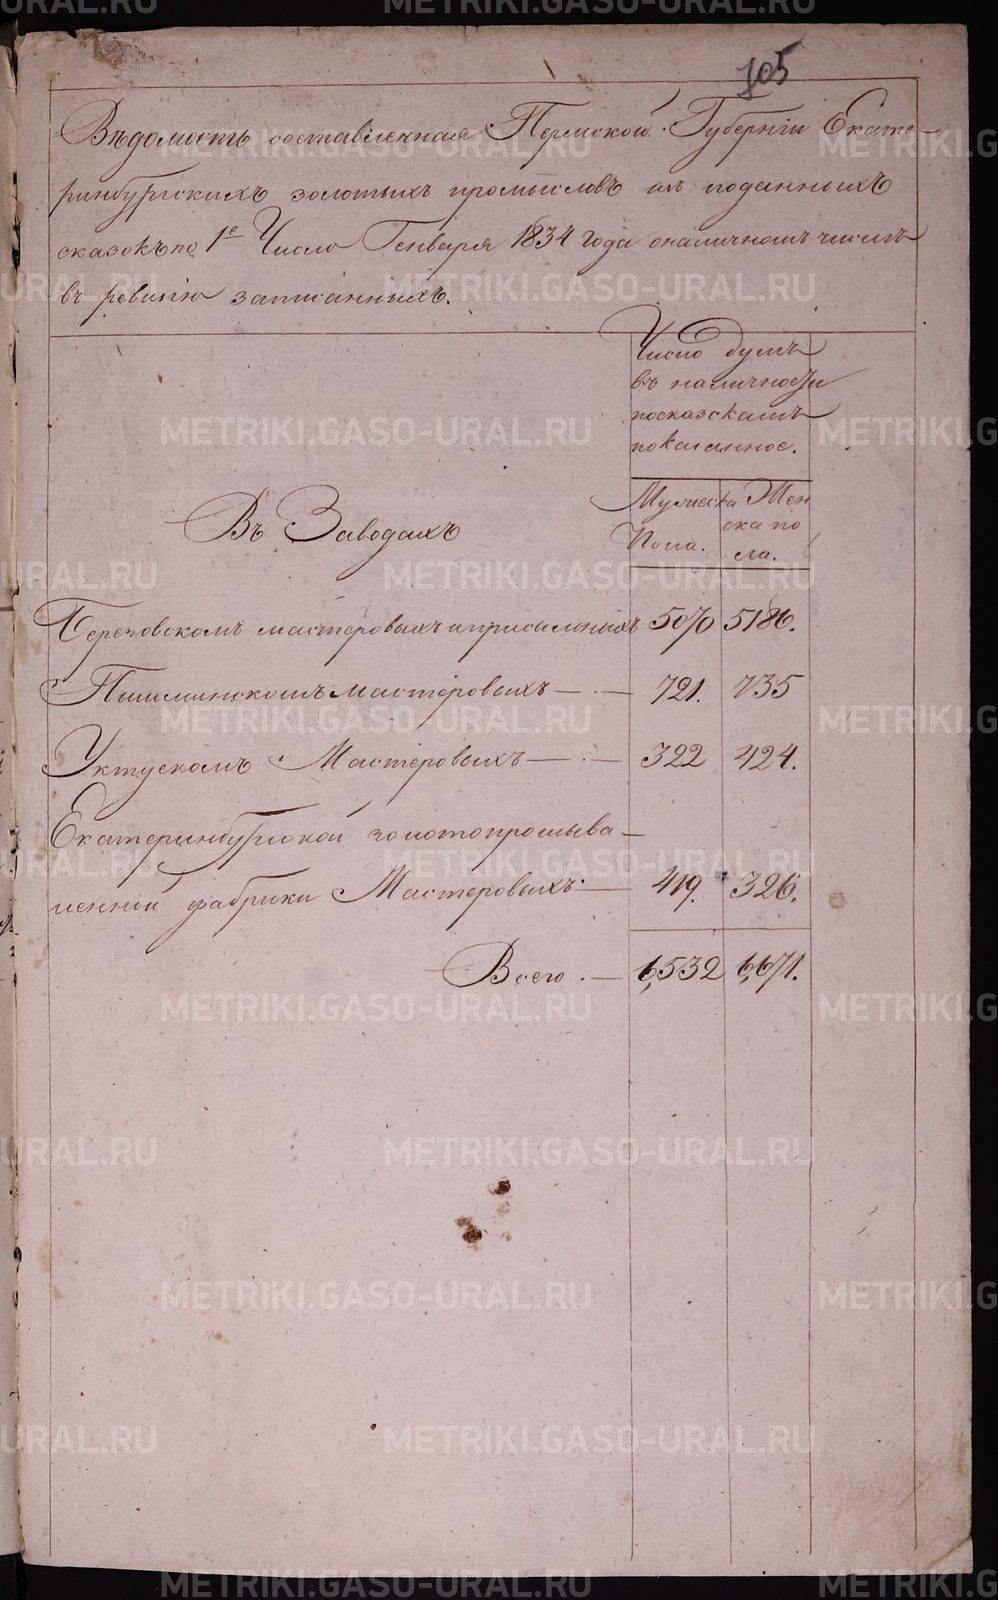 105
Вѣдомость составленная Пермской Губерніи Екате-
ринбургскихъ золотыхъ промысловъ изъ поданныхъ
сказокъ по 1е Число Генваря 1834 года оналичномъ числѣ
въ ревизію записанныхъ.
Число душъ
въ наличности
посказкамъ
показанное.
Въ Заводахъ
Мужеска Жен
Пола. ска по
ла.
Березовскомъ мастеровыхъ иприсыльныхъ 5070 5186.
Пышминскомъ мастеровыхъ — . — 721. 735
Уктускомъ Мастеровыхъ — . — 322 424.
Екатеринбургской золотопромыва-
ленной фабрики Мастеровыхъ. — 419. 326.
Всего . — 6,532 6,671.
METRIKI.GASO-URAL.RU